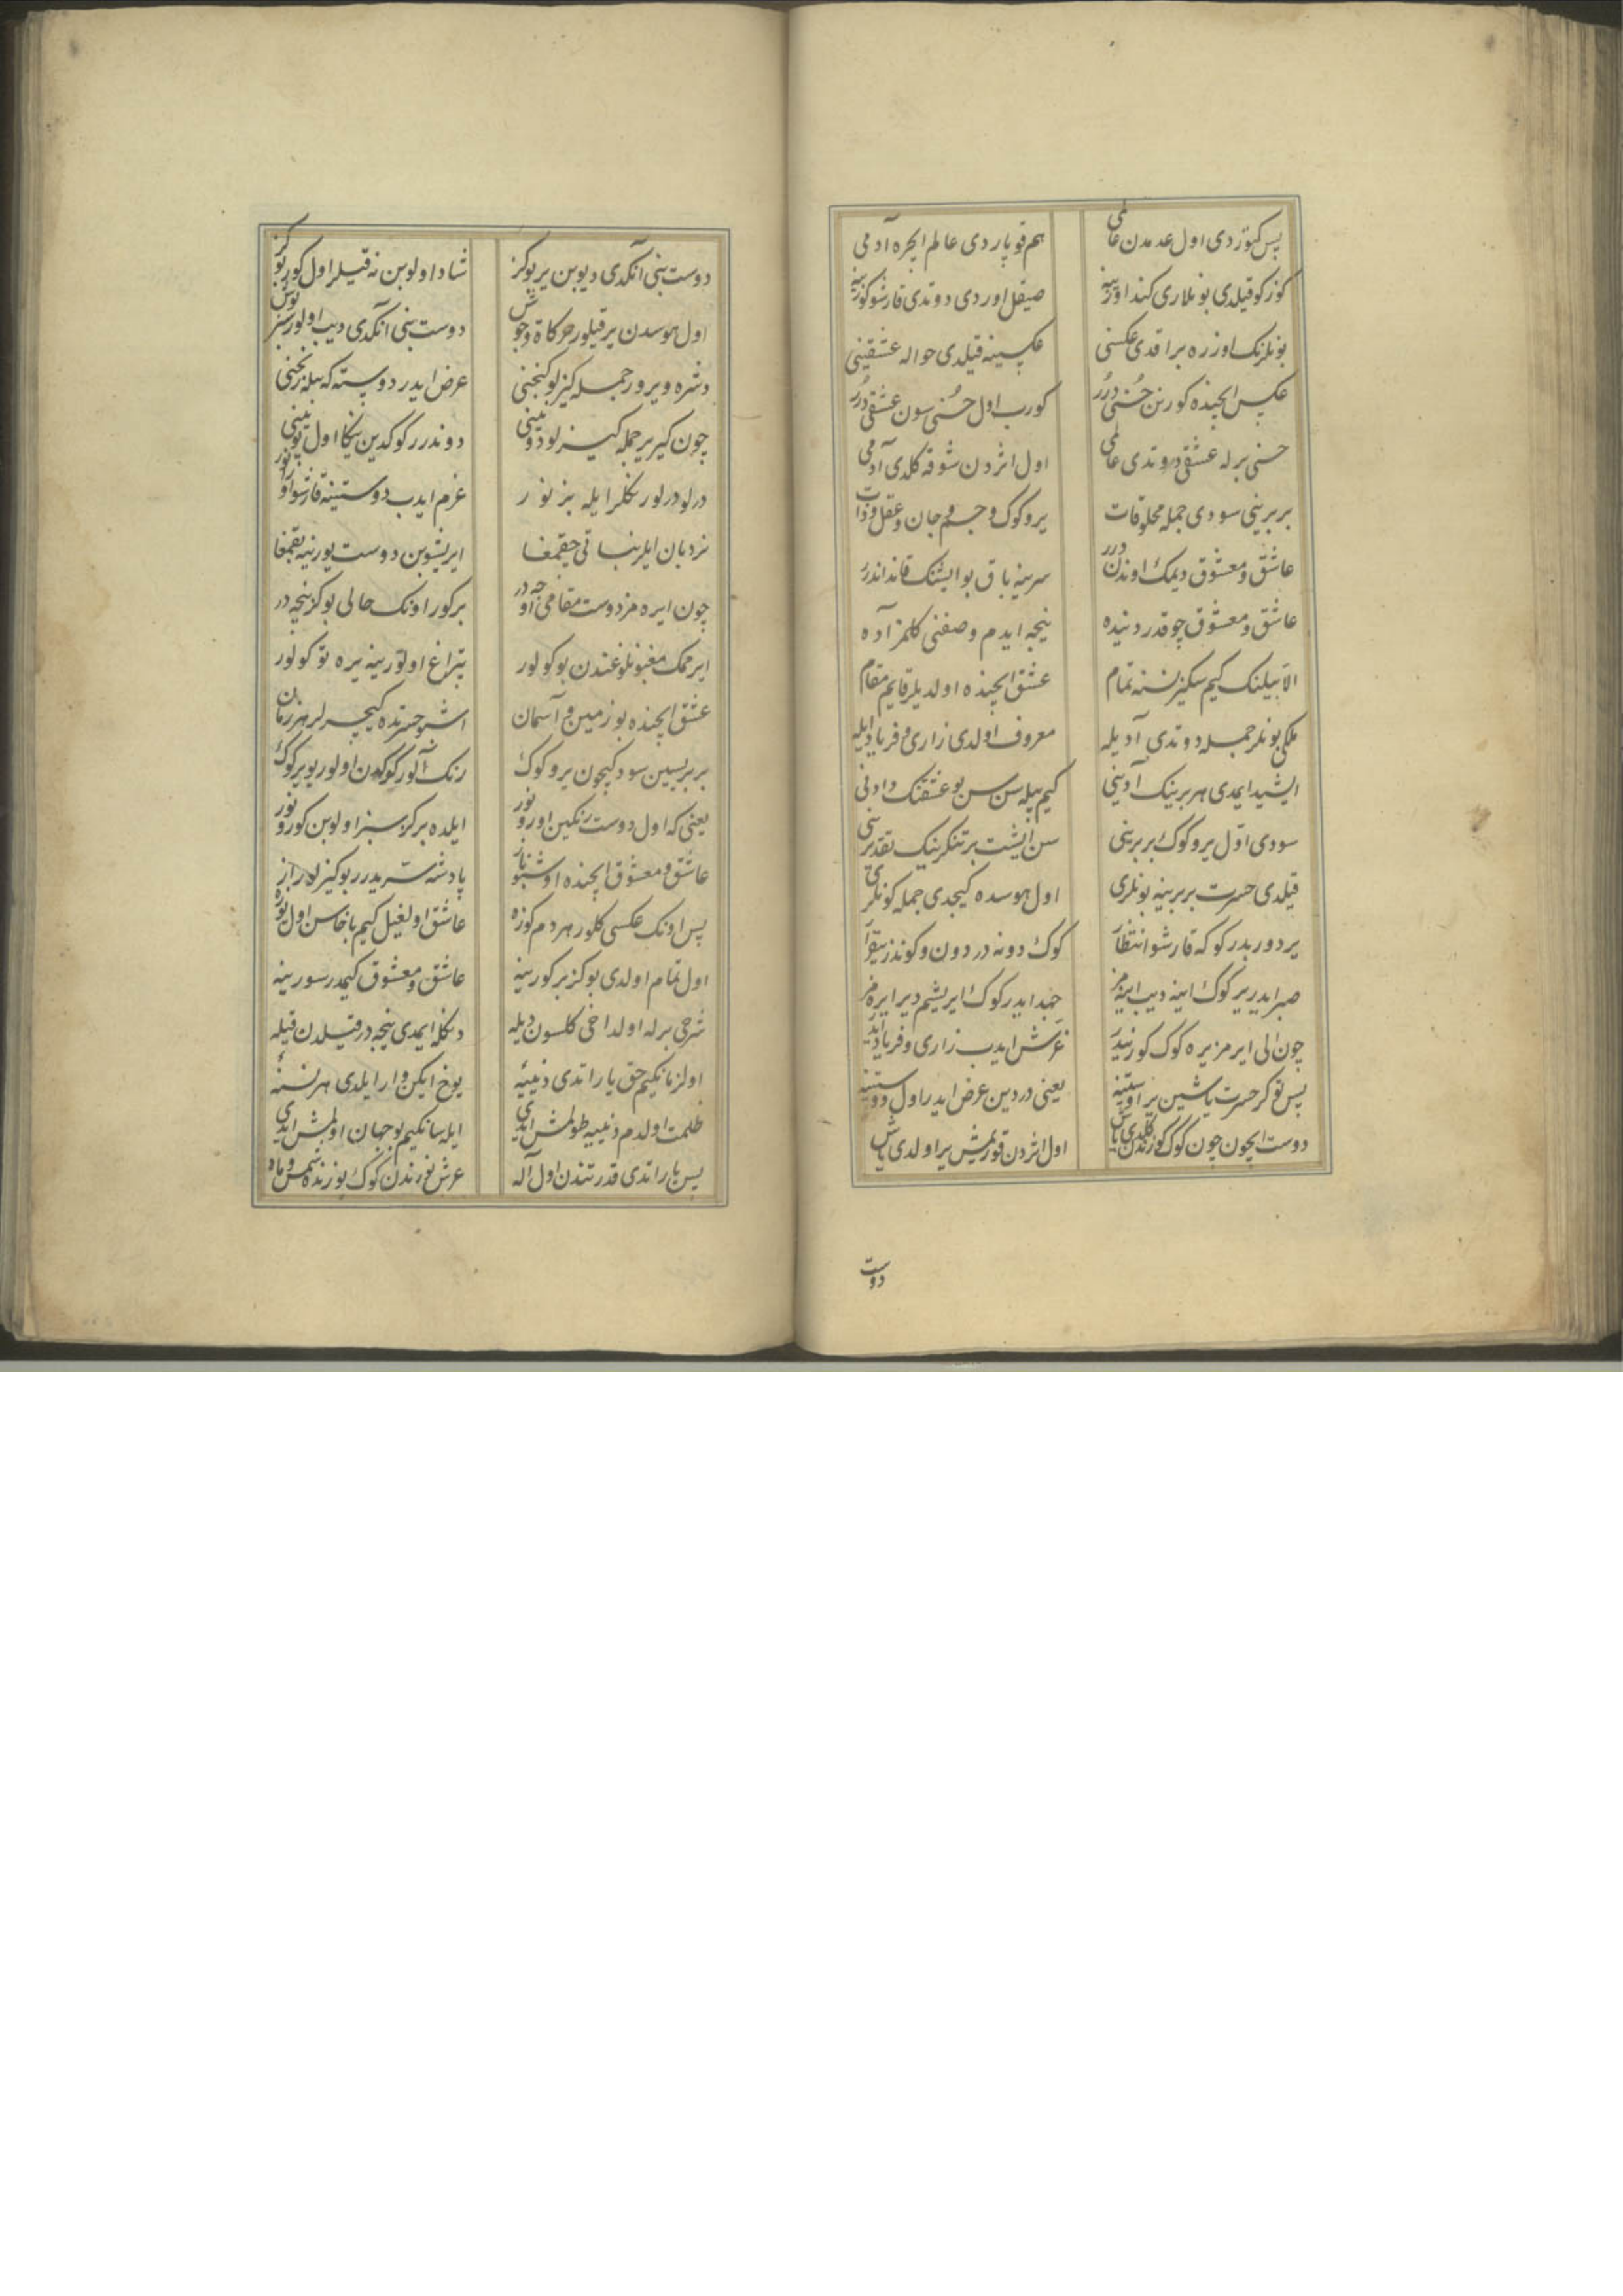 پس کتوردی اول عدمدن عالمی
هم قوپاردی عالم ایچره آدمی
کوزکو قیلدی بونلاری کندا اوزینه
صیقل اوردی دوتدی قارشو کوزینه
بونلرنک اوزره براقدی عکسنی
عکسینه قیلدی حواله عشقینی
عکس ایچنده کورنن حسنی درر
کورب اول حسنی سون عشقی درر
حسنی برله عشقی دوتدی عالمی
اول اثردن شوقه کلدی آدمی
بربرینی سودی جمله مخلوقات
یر و کوک و جسم و جان و عقل و ذات
عاشق و معشوق دیمک اوندن درر
سرینه باق بو ایشنک قانداندر
عاشق و معشوق چوقدر دنیده
نیجه ایدم وصفنی کلمز آده
الا بیلنک کیم سکیز نسنه تمام
عشق ایچنده اولدیلر قایم مقام
ملکی بونلر جمله دوتدی آدیله
معروف اولدی زاری و فریاد ایله
ایشید ایمدی هر برینک آدینی
کیم بیله سن سن بو عشقنک دادنی
سودی اول یر و کوک بربرینی
سن ایشت بر تنکرینک تقدیرینی
قیلدی حسرت بربرینه بونلری
اول هوسده کیچدی جمله کونلری
یر دوربدر کوکه قارشو انتظار
کوک دونه در دون و کوندز بیقرار
صبر ایدر یر کوک اینه دیب اینمز
جهد ایدر کوک ایریشم دیر ایره مز
چون الی ایرمز یره کوک کورنیدر
غرش ایدب زاری و فریاد ایدر
پس توکر حسرت یاشین یر اوستینه
یعنی دردین عرض ایدر اول دوستینه
دوست ایچون چون کوک کوزندن کلدی یاش
اول اثردن قورمیش یر اولدی یاش
دوست
دوست بنی آنکدی دیوبن یر بوکز
شاد اولوبن نه قیلر اول کور بوکز
اول هوسدن یر قیلور حرکاة و جوش
دوست بنی آنکدی دیب اولور سبز پوش
دشره ویرور جمله کیزلو کنجنی
عرض ایدر دوسته که بیله رنجنی
چون کیریر جمله کیزلو دوتینی
دوندرر کوکدین یکا اول یوتینی
درلو درلو رنکلر ایله بزنور
عزم ایدب دوستینه قارشو اوزانور
نردبان ایلر نباتی چقمغا
ایریشوبن دوست یورینه بقمغا
چون ایره مز دوست مقامی اوجه در
بر کور اونک حالی بوکز نیجه در
ایرمک مغبونلوغندن بوکولور
تپراغ اولور ینه یره توکولور
عشق ایچنده بو زمین و آسمان
اشبو حسرتده کیچرلر هر زمان
بربریسین سودکیچون یر و کوک
رنک آلور کوکدن اولور بو یر کوک
یعنی که اول دوست رنکین اورونور
ایلده بر کز سبز اولوبن کورونور
عاشق و معشوق ایچنده اوشبو ناز
پادشه سریدرر بو کیزلو راز
پس اونک عکسی کلور هردم کوزه
عاشق اولغیل کیم باخاسن اول یوزه
اول تمام اولدی بوکز بر کورینه
عاشق و معشوق کیمدر سورینه
شرحی برله اولداخی کلسون دیله
دنکله ایمدی نیجه در قیلدن قیله
اولزمانکیم حق یاراتدی دنییه
یوخ ایکن وار ایلدی هر نسنه
ظلمت اولدم دنییه طولمش ایدی
ایله سانکیم بو جهان اولمش ایدی
پس یاراتدی قدرتندن اول اله
عرش نورندن کوک یوزنده شمس و ماه